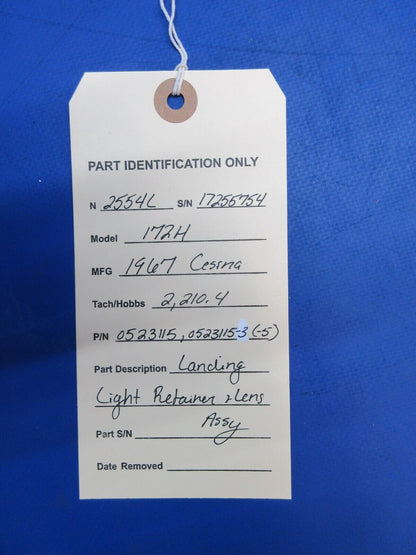 PART IDENTIFICATION ONLY
N 2554L S/N 17255754
Model 172H
MFG 1967 Cessna
Tach/Hobbs 2,210.4
P/N 0523115, 0523115-3 (-5)
Part Description Landing
Light Retainer & Lens
Part S/N Assy
Date Removed